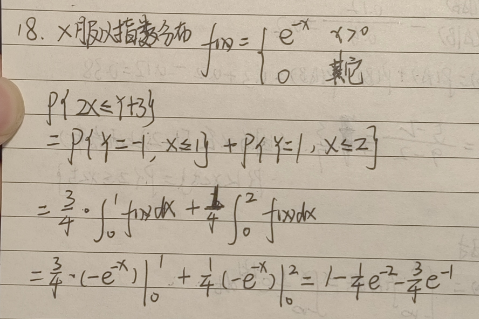 18. X服从指数分布 f(x) = { e^{-x} x>0
0 其它
P{2X≤Y+3}
= P{Y=-1, X≤1} + P{Y=1, X≤2}
= 3/4 · ∫_0^1 f(x)dx + 1/4 ∫_0^2 f(x)dx
= 3/4 · (-e^{-x}) |_0^1 + 1/4 (-e^{-x}) |_0^2 = 1 - 1/4 e^{-2} - 3/4 e^{-1}